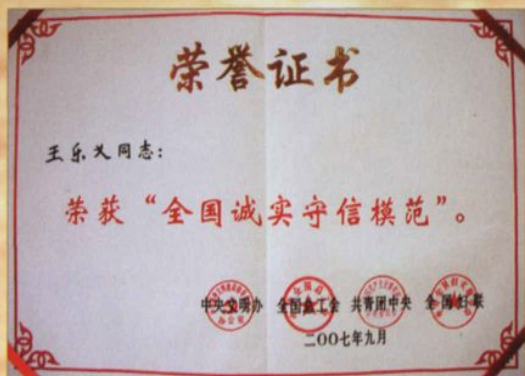 荣誉证书
王乐义同志：
荣获“全国诚实守信模范”。
中央文明办 全国总工会 共青团中央 全国妇联
二〇〇七年九月